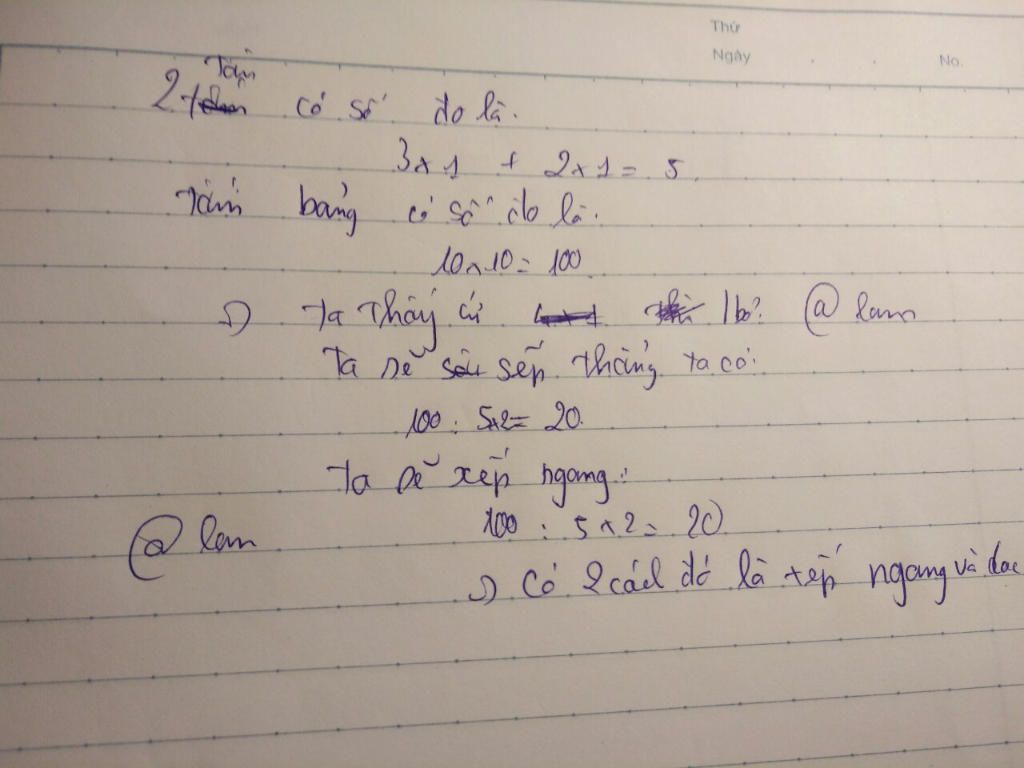 Thứ
Ngày . . No.
2 Tấm có số đo là.
3x1 + 2x1 = 5.
Tấm bảng có số đo là.
10x10 = 100
=) Ta thấy cứ 1 bộ. @ lam
Ta sẽ sếp thẳng ta có:
100 : 5x2 = 20.
Ta sẽ xếp ngang:
@ lam 100 : 5 x 2 = 20
=) Có 2 cách đó là xếp ngang và doc